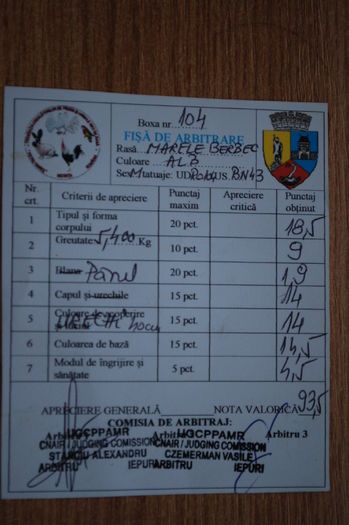 Boxa nr. 104
FIȘĂ DE ARBITRARE
Rasă MARELE BERBEC
Culoare ALB
Sex M
Nr. crt. Criterii de apreciere Punctaj maxim Apreciere critică Punctaj obținut
1 Tipul și forma corpului 20 pct. 18,5
2 Greutate 5,400 Kg 10 pct. 9
3 Blana 20 pct. 19
4 Capul și urechile 15 pct. 14
5 Culoare de acoperire 15 pct. 14
6 Culoarea de bază 15 pct. 14,5
7 Modul de îngrijire și sănătate 5 pct. 4,5
APRECIERE GENERALĂ NOTA VALORICĂ 93,5
COMISIA DE ARBITRAJ:
Arbitru 3
UGCPPAMR UGCPPAMR
CNAIR / JUDGING COMISSION CNAIR / JUDGING COMISSION
ALEXANDRU CZEMERMAN VASILE
ARBITRU IEPURI ARBITRU IEPURI